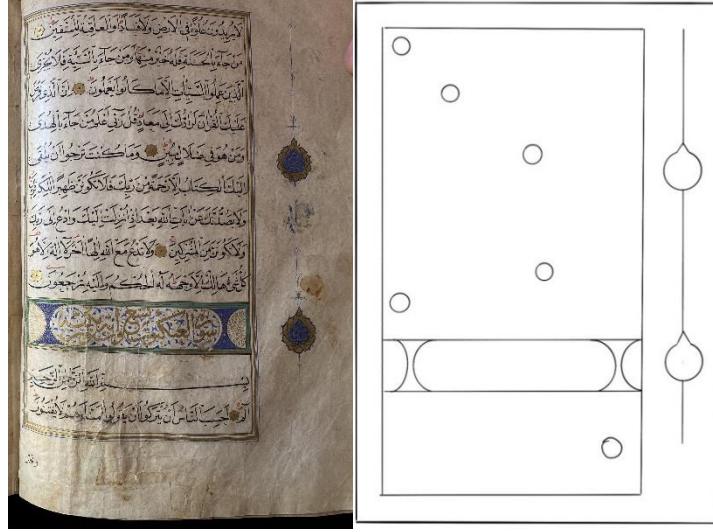 لا يريدون علوا في الأرض ولا فسادا والعاقبة للمتقين
من جاء بالحسنة فله خير منها ومن جاء بالسيئة فلا يجزى
الذين عملوا السيئات إلا ما كانوا يعملون إن الذي فرض
عليك القرآن لرادك إلى معاد قل ربي أعلم من جاء بالهدى
ومن هو في ضلال مبين وما كنت ترجوا أن يلقى
إليك الكتاب إلا رحمة من ربك فلا تكونن ظهيرا للكافرين
ولا يصدنك عن آيات الله بعد إذ أنزلت إليك وادع إلى ربك
ولا تكونن من المشركين ولا تدع مع الله إلها آخر لا إله إلا هو
كل شيء هالك إلا وجهه له الحكم وإليه ترجعون
سورة العنكبوت
بسم الله الرحمن الرحيم
الم أحسب الناس أن يتركوا أن يقولوا آمنا وهم لا يفتنون